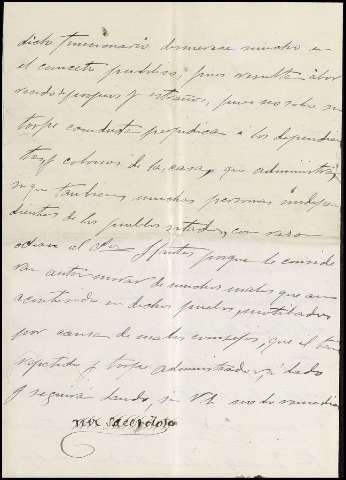 dicho funcionario desmerece mucho en
el concepto publico, pues resulta abor
recido de propios y estraños, pues no solo su
torpe conducta perjudica a los dependien
tes y colonos de la casa, que administra,
sino que tambien a muchas personas indepen
dientes de los pueblos citados, con razon
odian al Sr. porque le conside
ran autor moral de muchos males que an
acontecido en dichos pueblos
por causa de malos consejos, que el tan
repetido y torpe administrador, á dado
y seguirá dando, si V. E. no lo remedia
un sacerdote